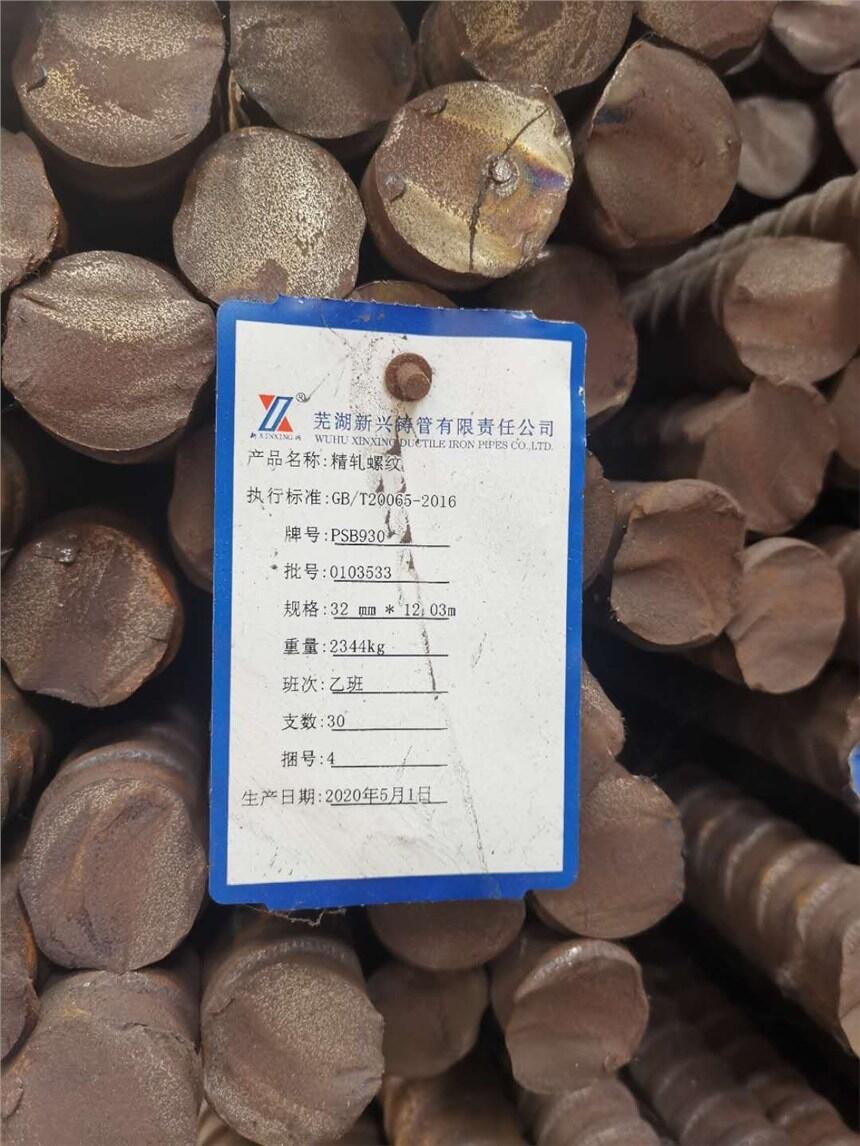 ®
新 XINXING 兴
芜湖新兴铸管有限责任公司
WUHU XINXING DUCTILE IRON PIPES CO.,LTD.
产品名称:精轧螺纹
执行标准:GB/T20065-2016
牌号:PSB930
批号:0103533
规格:32 mm * 12.03m
重量:2344kg
班次:乙班
支数:30
捆号:4
生产日期:2020年5月1日